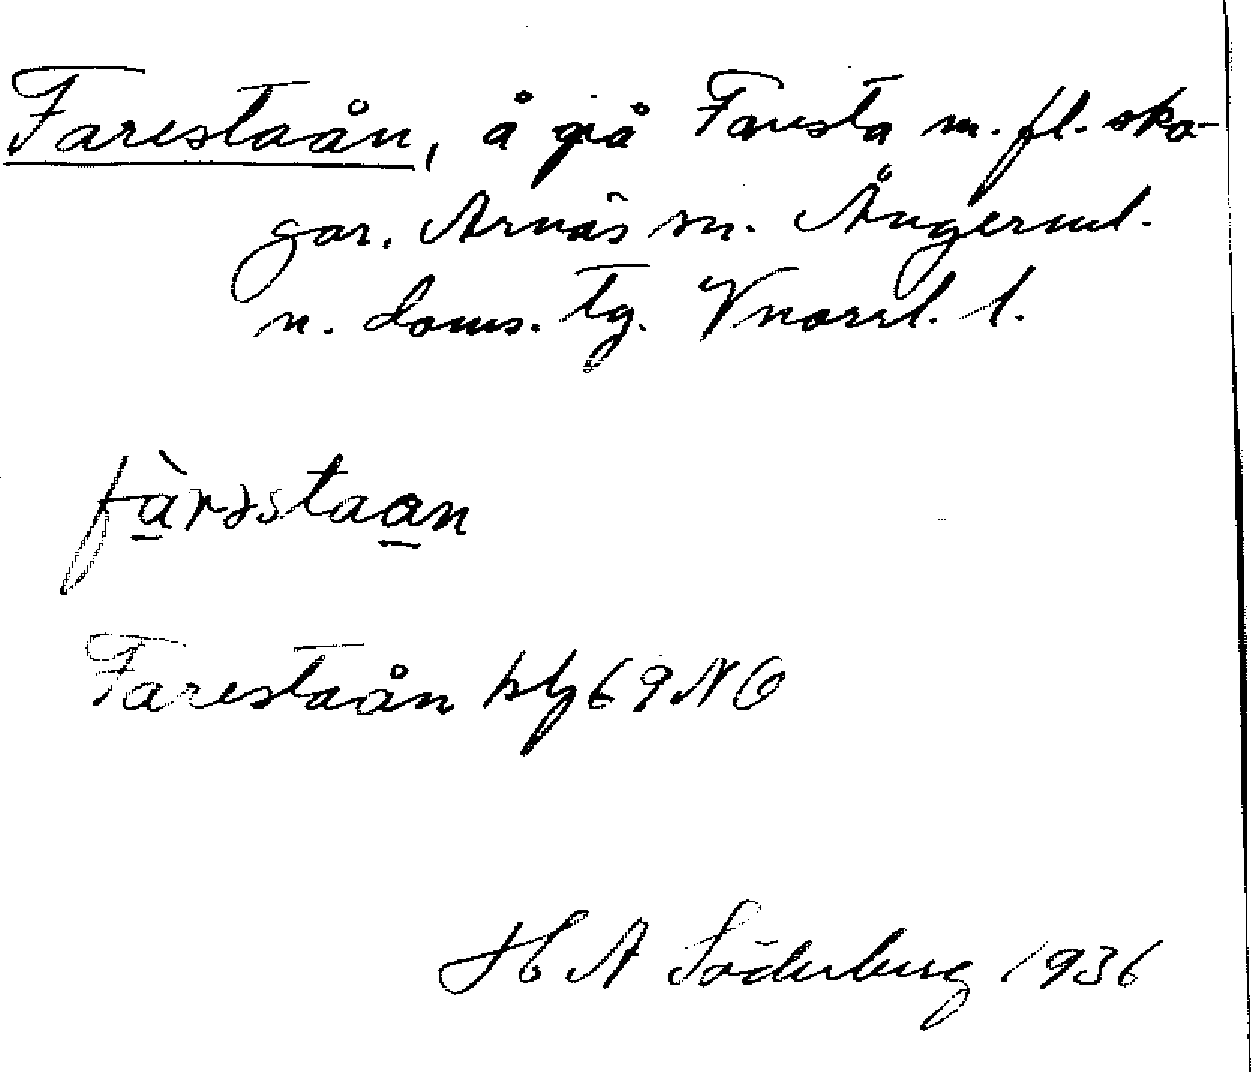 Farestaån, å på Faresta m. fl. sko-
gar. Arnäs sn. Ångerml.
n. doms. tg. Vnorrl. l.
fàrəstaan
Farestaån kbl 69 NO
H A Söderberg 1936